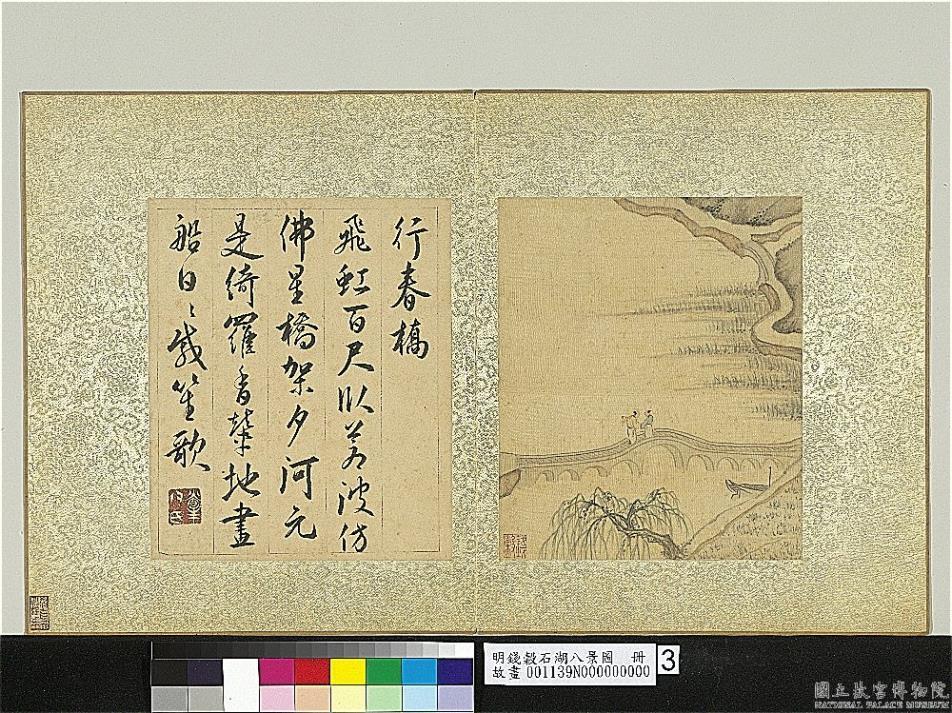 行春橋
飛虹百尺臥蒼波仿
佛星橋架夕河元
是綺羅香輦地畫
船日〻載笙歌
明錢穀石湖八景圖 冊
故畫 001139N000000000
3
國立故宮博物院
NATIONAL PALACE MUSEUM